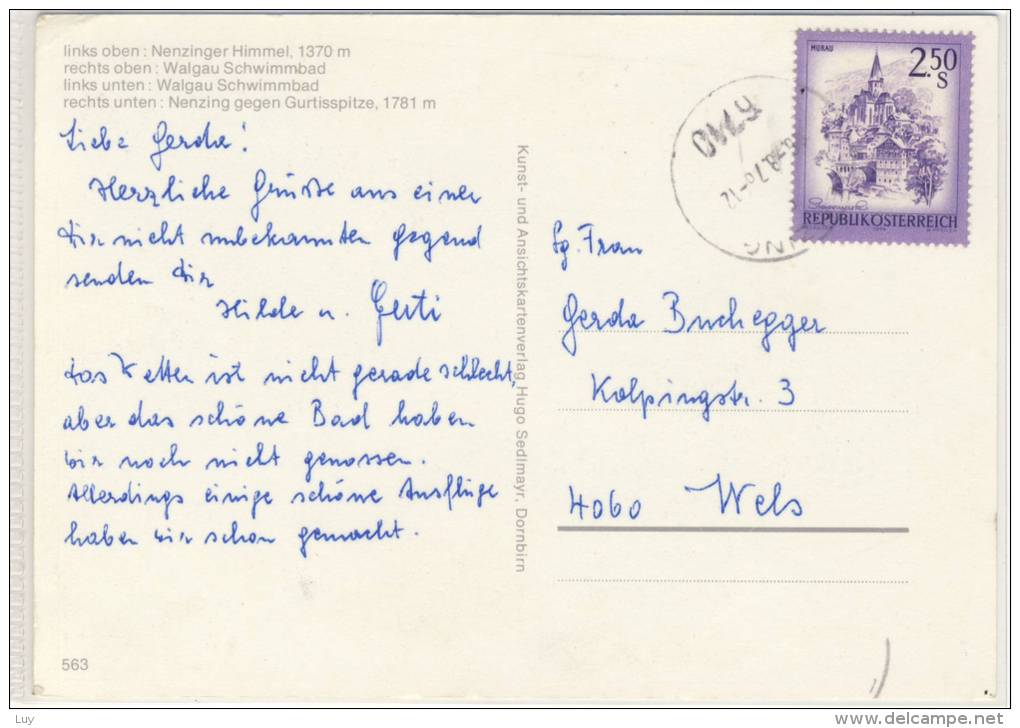 links oben : Nenzinger Himmel, 1370 m
rechts oben : Walgau Schwimmbad
links unten : Walgau Schwimmbad
rechts unten : Nenzing gegen Gurtisspitze, 1781 m
Liebe Gerda!
Herzliche Grüße aus einer
Dir nicht unbekannten Gegend
senden Dir
Hilde u. Gerti
Das Wetter ist nicht gerade schlecht,
aber das schöne Bad haben
wir noch nicht genossen.
Allerdings einige schöne Ausflüge
haben wir schon gemacht.
563
Kunst- und Ansichtskartenverlag Hugo Sedlmayr, Dornbirn
MURAU
2.50
S
REPUBLIK ÖSTERREICH
Sg. Frau
Gerda Buchegger
Kolpingstr. 3
4060 Wels
Luy
www.delcampe.net